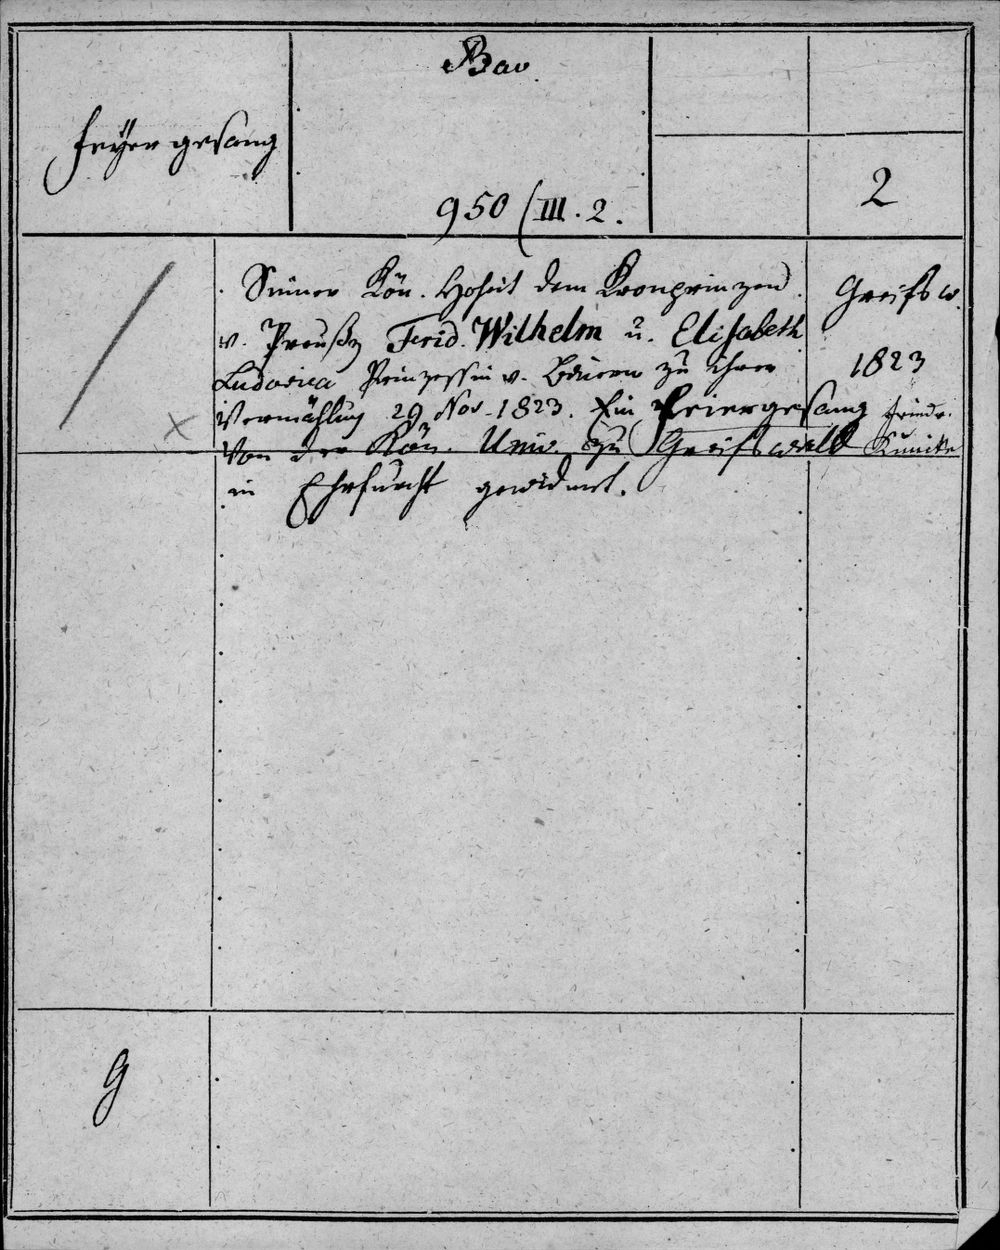 Bav.
Feyergesang
950/III.2.
2
Seiner Kön. Hoheit dem Kronprinzen
v. Preußen Frid. Wilhelm u. Elisabeth
Ludovica Prinzessin v. Baiern zu ihrer
Vermählung 29 Nov. 1823. Ein Feiergesang
von der Kön. Univ. zu Greifswald
in Ehrfurcht gewidmet.
Greifsw.
1823
Friedr.
Kunike
g